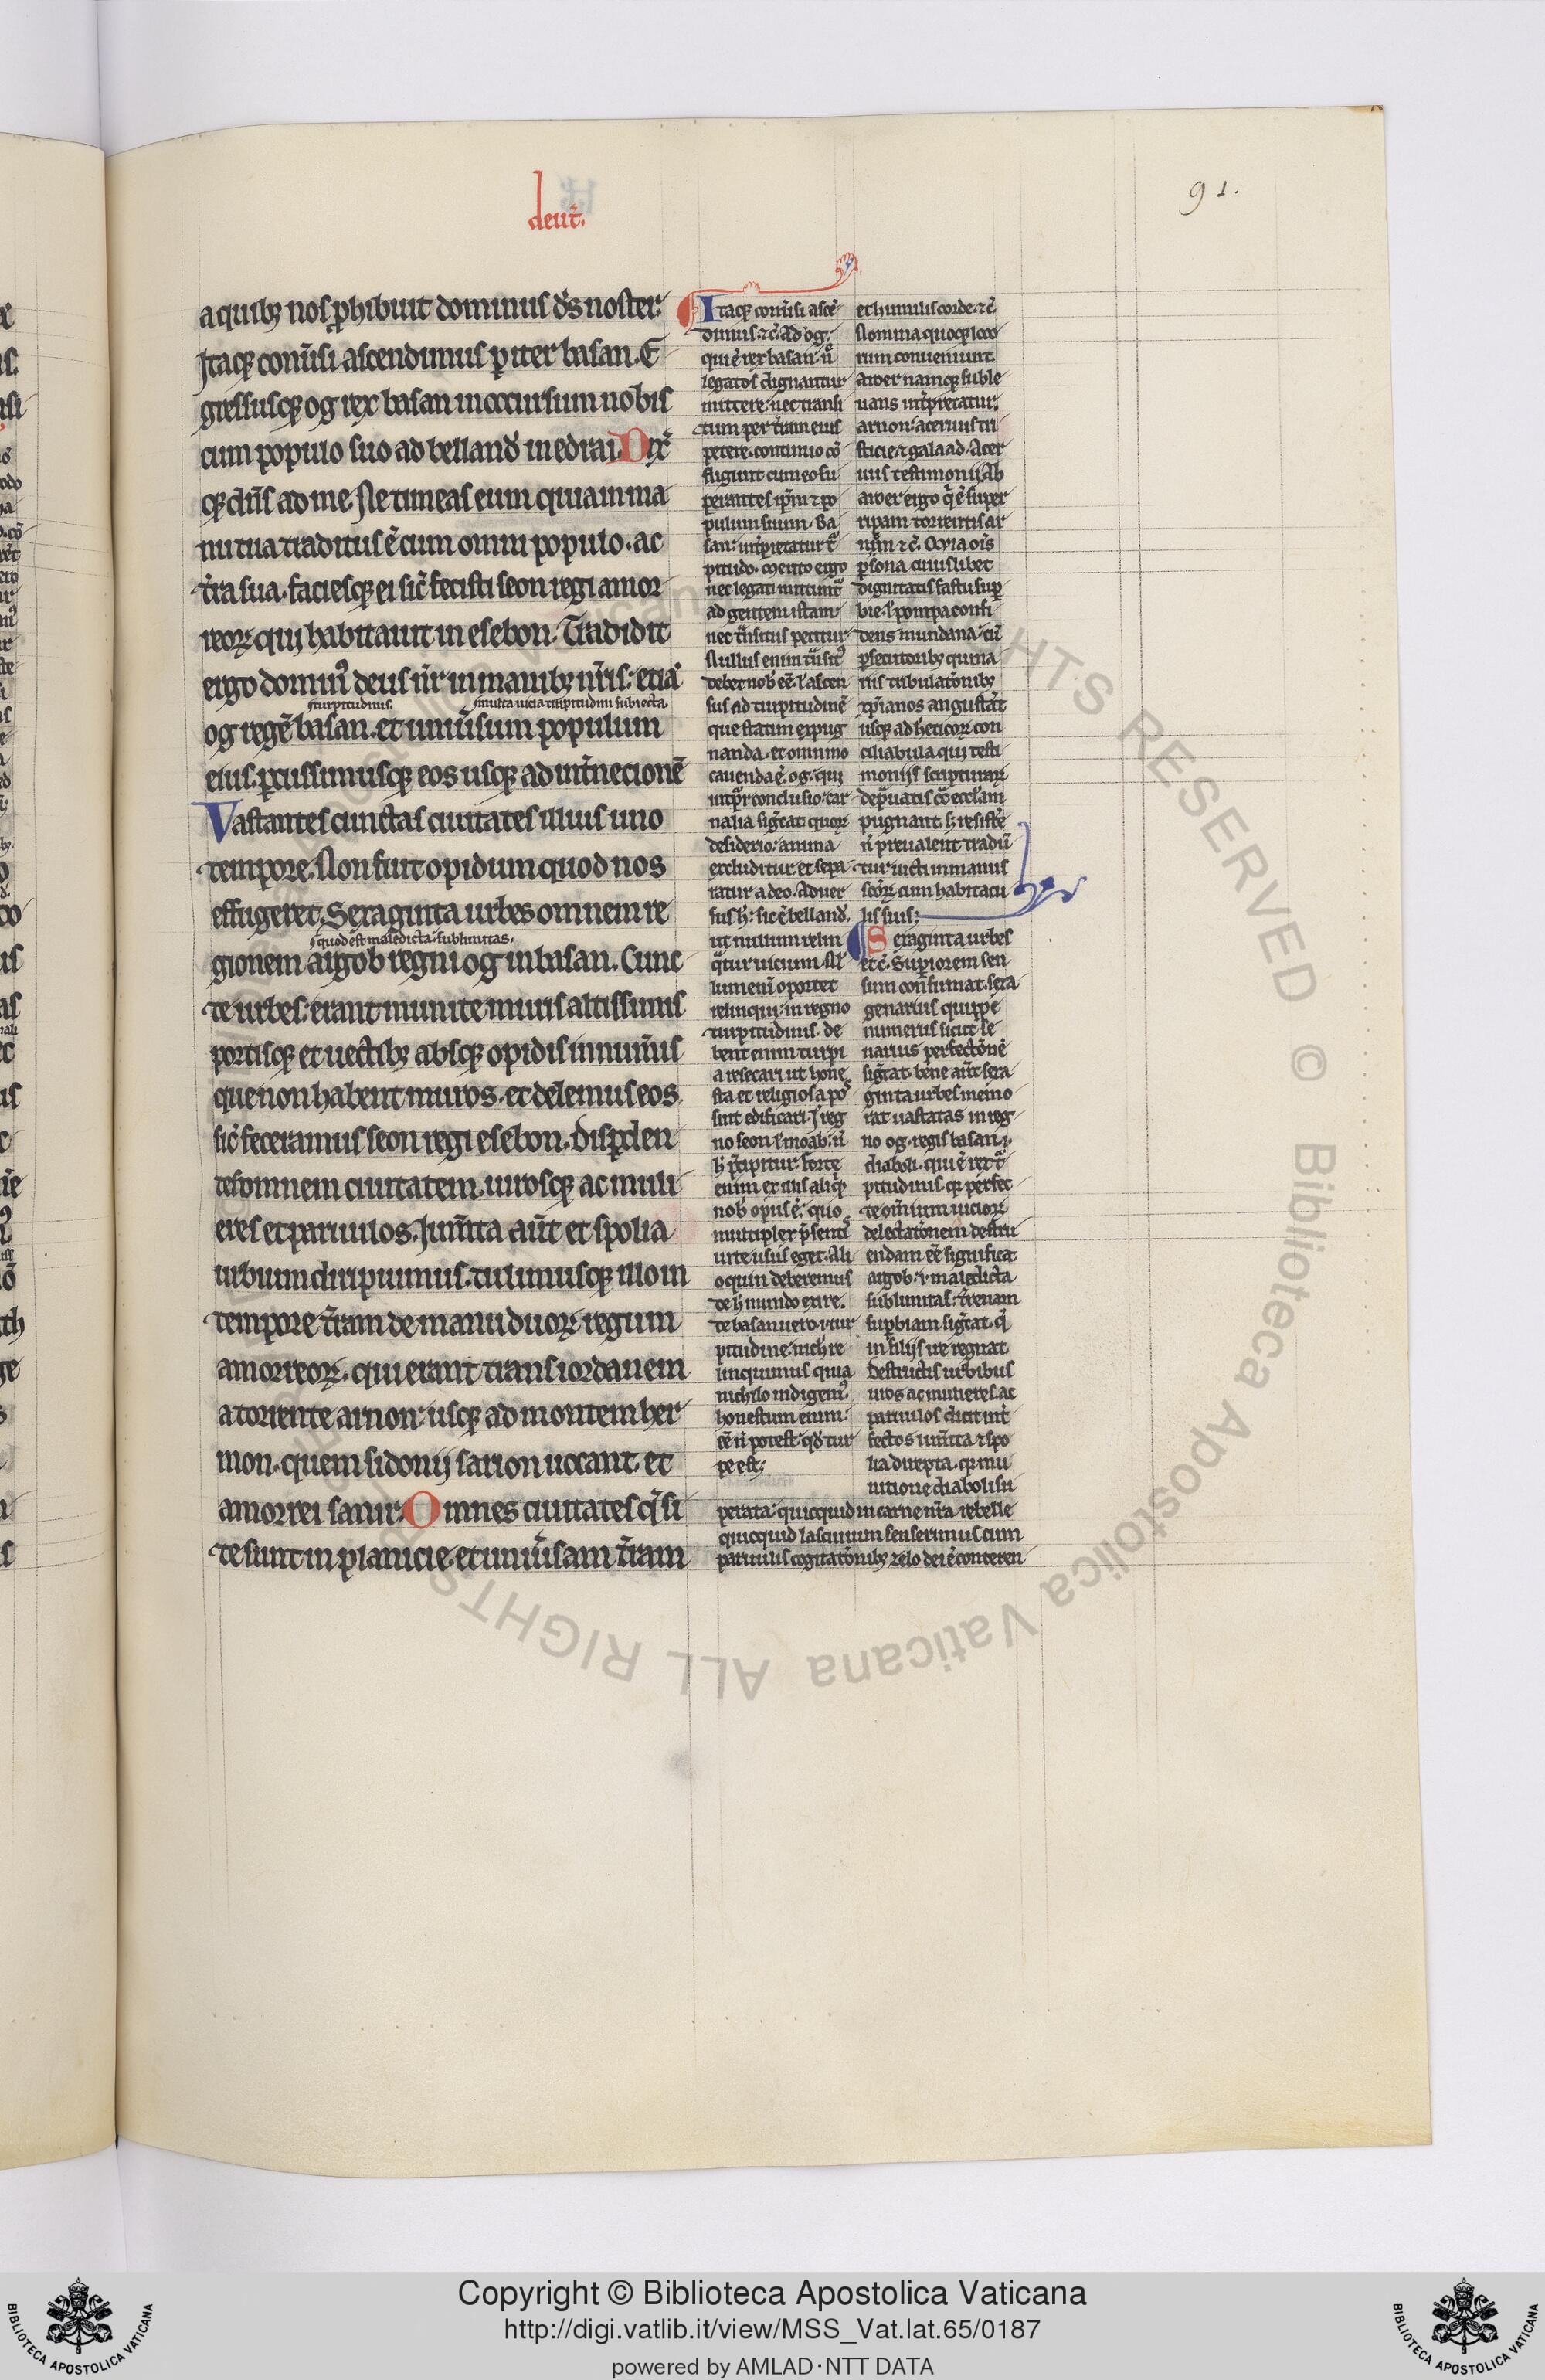 deut̄.
91.
a quibꝫ nos ꝓhibuit dominus d̄s noster.
Itaqꝫ conũsi ascendimus ꝑ iter basan. E
gressusqꝫ og rex basan in occursum nobis
cum populo suo ad belland̄ in edrai. Dix̄
qꝫ dn̄s ad me. Ne timeas eum quia in ma
nu tua traditus ē cum omni populo. ac
t̄ra sua. faciesqꝫ ei sic̄ fecisti seon regi amor
reoꝝ qui habitauit in esebon. Tradidit
ergo dominꝰ deus nr̄ in manibꝫ nr̄is: etiā
turpitudinis. multa uicia turpitudini subiecta.
og regē basan. et uniũsum populum
eius. ꝑcussimusqꝫ eos usqꝫ ad int̄necionē
Vastantes cunctas ciuitates illius uno
tempore. Non fuit opidum quod nos
effugeret. Sexaginta urbes omnem re
quod est maledicta sublimitas.
gionem argob regni og in basan. Cunc
te urbes erant munite muris altissimis
portisqꝫ et uectibꝫ absqꝫ opidis innum̄is
que non habent muros. et deleuimus eos
sic̄ feceramus seon regi esebon. disꝑden
tes omnem ciuitatem. uirosqꝫ ac muli
eres et paruulos. Jum̄ta aūt et spolia
urbium diripuimus. tulimusqꝫ illo in
tempore t̄ram de manu duoꝝ regum
amorreoꝝ. qui erant trans iordanem
a torrente arnon usqꝫ ad montem her
mon. quem sidonij sarion uocant. et
amorrei sanir. Omnes ciuitates q̄ si
te sunt in planicie. et uniũsam t̄ram
Itaqꝫ conũsi ascē
dimus. ⁊c̄. Ad og.
qui ē rex basan. n̄
legatos dignantur
mittere. nec transi
tum per t̄ram eius
petere. continuo cō
fligunt cum eo su
perantes ip̄m ⁊ po
pulum suum. Ba
san. int̄pretatur t̄
pitudo. Merito ergo
nec legati mittunt̄
ad gentem istam.
nec t̄nsitus petitur
Nullus enim t̄nsitꝰ
debet nob̄ eē. ł ascen
sus ad turpitudinē
que statim expug
nanda. et omnino
cauenda ē. og. qui
int̄pr̄ conclusio. car
nalia siḡcat. quoꝝ
desiderio. anima
excluditur et sepa
ratur a deo. Aduer
sus h̄: sic ē belland̄.
ut nullum relin
q̄tur uiuum. Nł
lum eni oportet
relinqui in regno
turpitudinis. de
bent enim turpi
a resecari ut hone
sta et religiosa pos
sint edificari. J reg
no seon ł moab. n̄
h̄ p̄cipitur. forte
enim ex illis aliqꝫ
nob̄ opus ē. quo
multiplex p̄sentꝭ
uite usus eget. Ali
oquin deberemus
de h̄ mundo exire.
de basan uero .i. tur
pitudine. nichil re
linquimus quia
nichilo indigemꝰ.
honestum enim.
eē n̄ potest. qd̄ tur
pe est.
et humilis corde. ⁊c̄.
Nomina quoqꝫ loco
rum conueniunt.
Aroer namqꝫ suble
uans int̄pretatur.
arnon. aceruus tri
sticie. ⁊ galaad. Acer
uus testimonij. Ab
aroer ergo q̄ ē super
ripam torrentis ar
non ⁊c̄. Quia om̄is
ꝑsona cuiuslibet
dignitatis fastu suꝑ
bie. ł pompa confi
dens mundana cū
ꝑsecutoribꝫ quina
riis tribulat̄onibꝫ
xp̄ianos angustat
usqꝫ ad heticoꝝ con
ciliabula qui testi
monijs scripturaꝝ
dep̄uatis c̄o eccłam
pugnant. h̄ resistē
n̄ preualent. tradū
tur uicti in manus
scōꝝ cum habitacu
lis suis.
Sexaginta urbes
etc̄. Suꝑiorem sen
sum confirmat. sexa
genarius quippe
numerus sicut se
narius perfect̄onē
siḡcat. bene aūt sexa
ginta urbes memo
rat uastatas in reg
no og. regis basan .i.
diaboli. qui ē rex t̄
pitudinis. qꝛ perfec
te om̄ium uicioꝝ
delectat̄onem destru
endam eē significat
argob. i. maledicta
sublimitas. t̄renam
suꝑbiam siḡcat. q̄
in filijs ire regnat
destructis urbibus
uiros ac mulieres. ac
paruulos dicit int̄
fectos. ium̄ta ⁊ spo
lia direpta. qꝛ mu
nitione diaboli su
perata. quicquid in carne nr̄a rebelle
quicquid lasciuum senserimus cum
paruulis cogitat̄onibꝫ zelo dei ē conteren
Copyright © Biblioteca Apostolica Vaticana
http://digi.vatlib.it/view/MSS_Vat.lat.65/0187
powered by AMLAD·NTT DATA
BIBLIOTECA APOSTOLICA VATICANA
BIBLIOTECA APOSTOLICA VATICANA